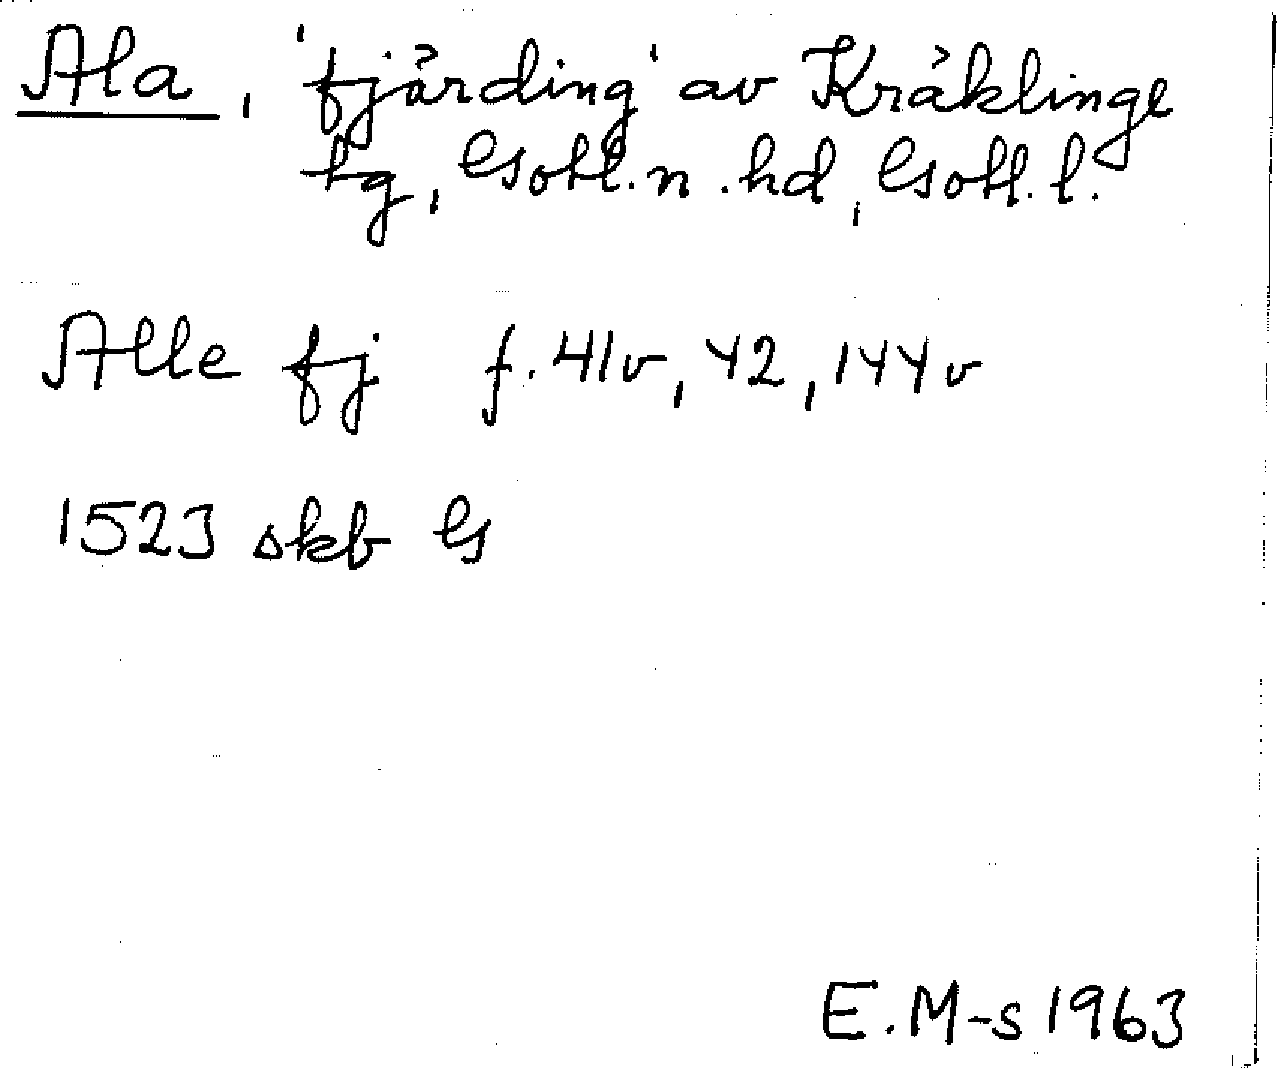 Ala, 'fjärding' av Kräklinge
tg, Gotl. n. hd, Gotl. l.
Alle fj f. 41v, 42, 144v
1523 skb G
E.M-s 1963